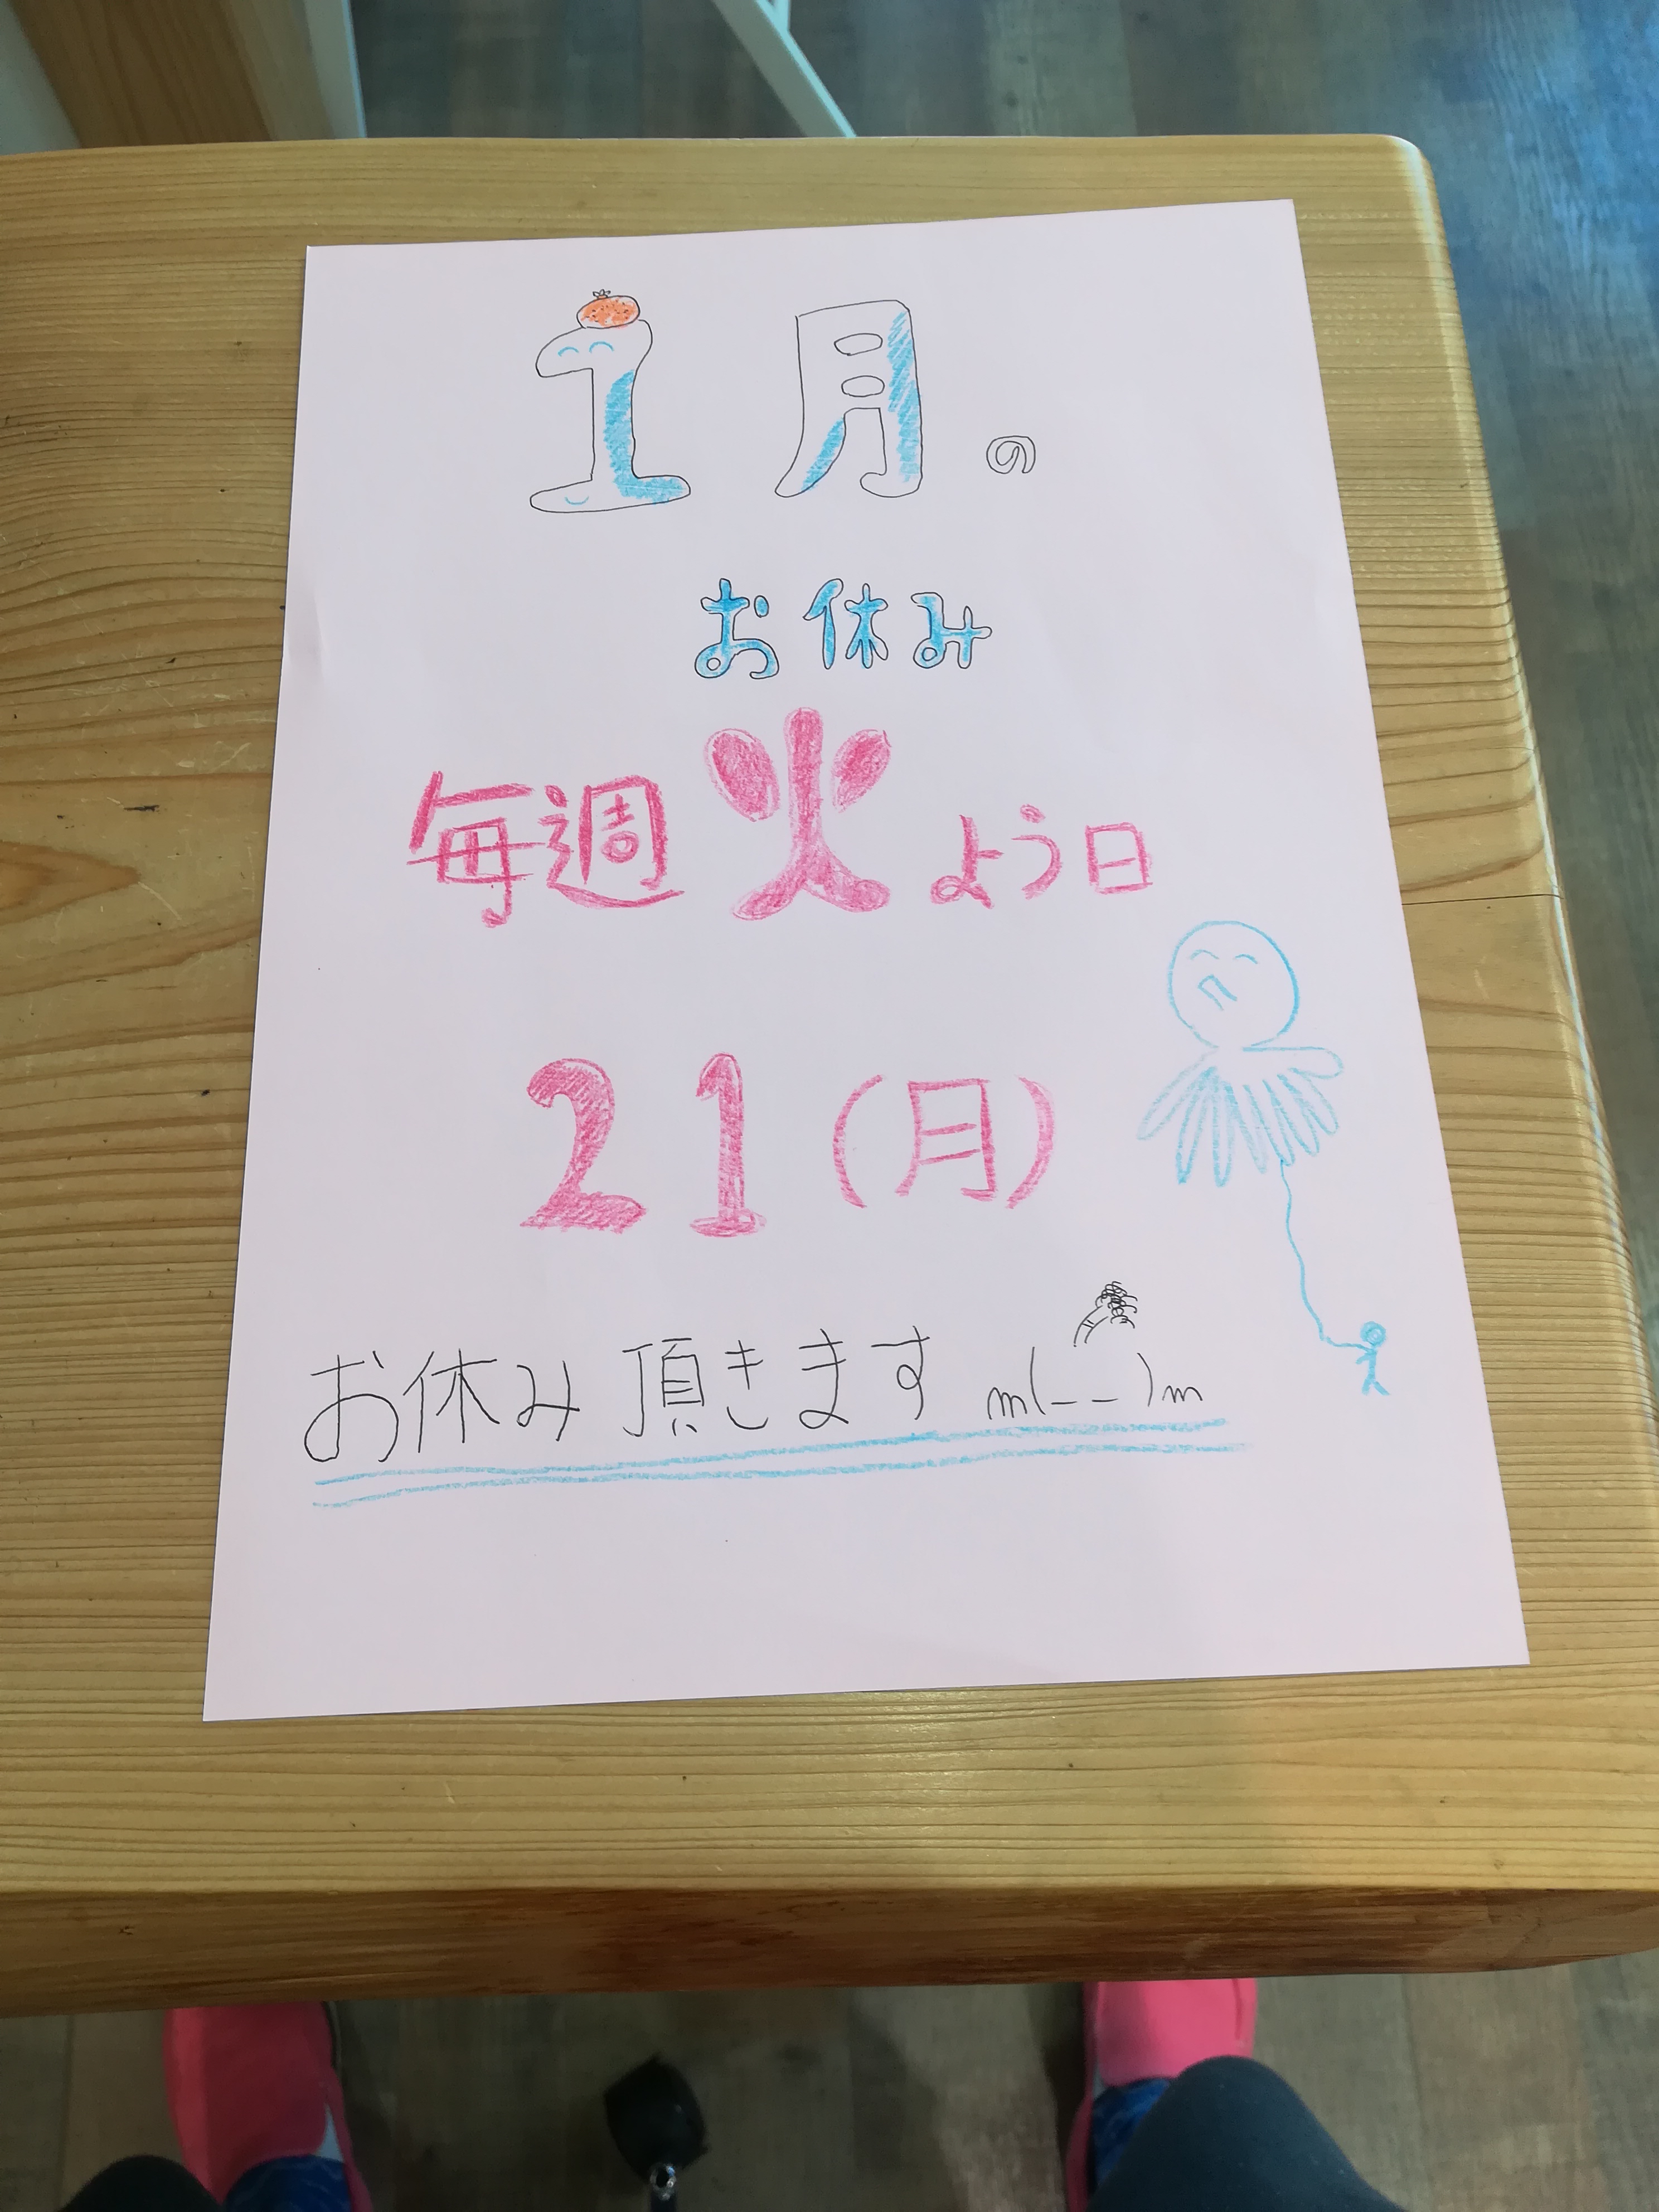 1月の
お休み
毎週火よう日
21(月)
お休み頂きます m(__)m